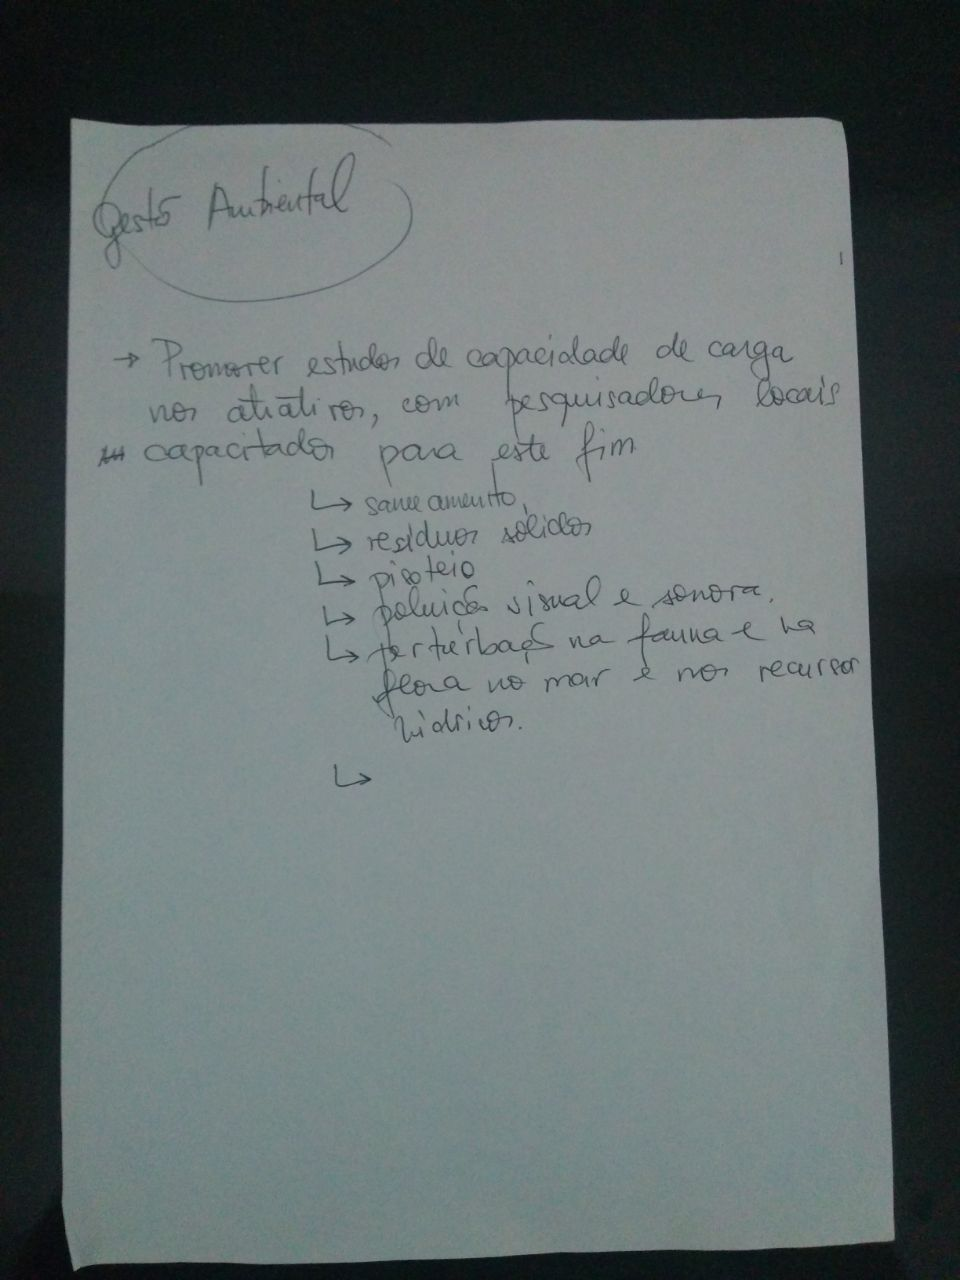 Gestão Ambiental
→ Promover estudos de capacidade de carga
nos atrativos, com pesquisadores locais
capacitados para este fim
↳ saneamento,
↳ resíduos sólidos
↳ pisoteio
↳ poluição visual e sonora.
↳ perturbação na fauna e na
flora no mar e nos recursos
hídricos.
↳